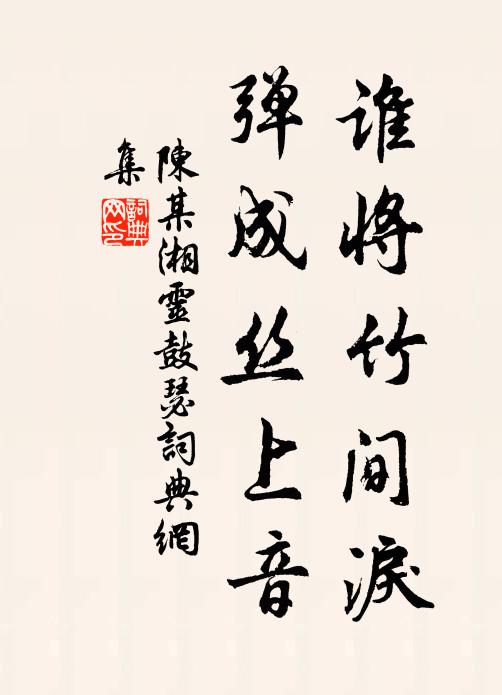 谁将竹间淚
弹成丝上音
陳某湘靈鼓瑟詞典網
集
詞典
网印